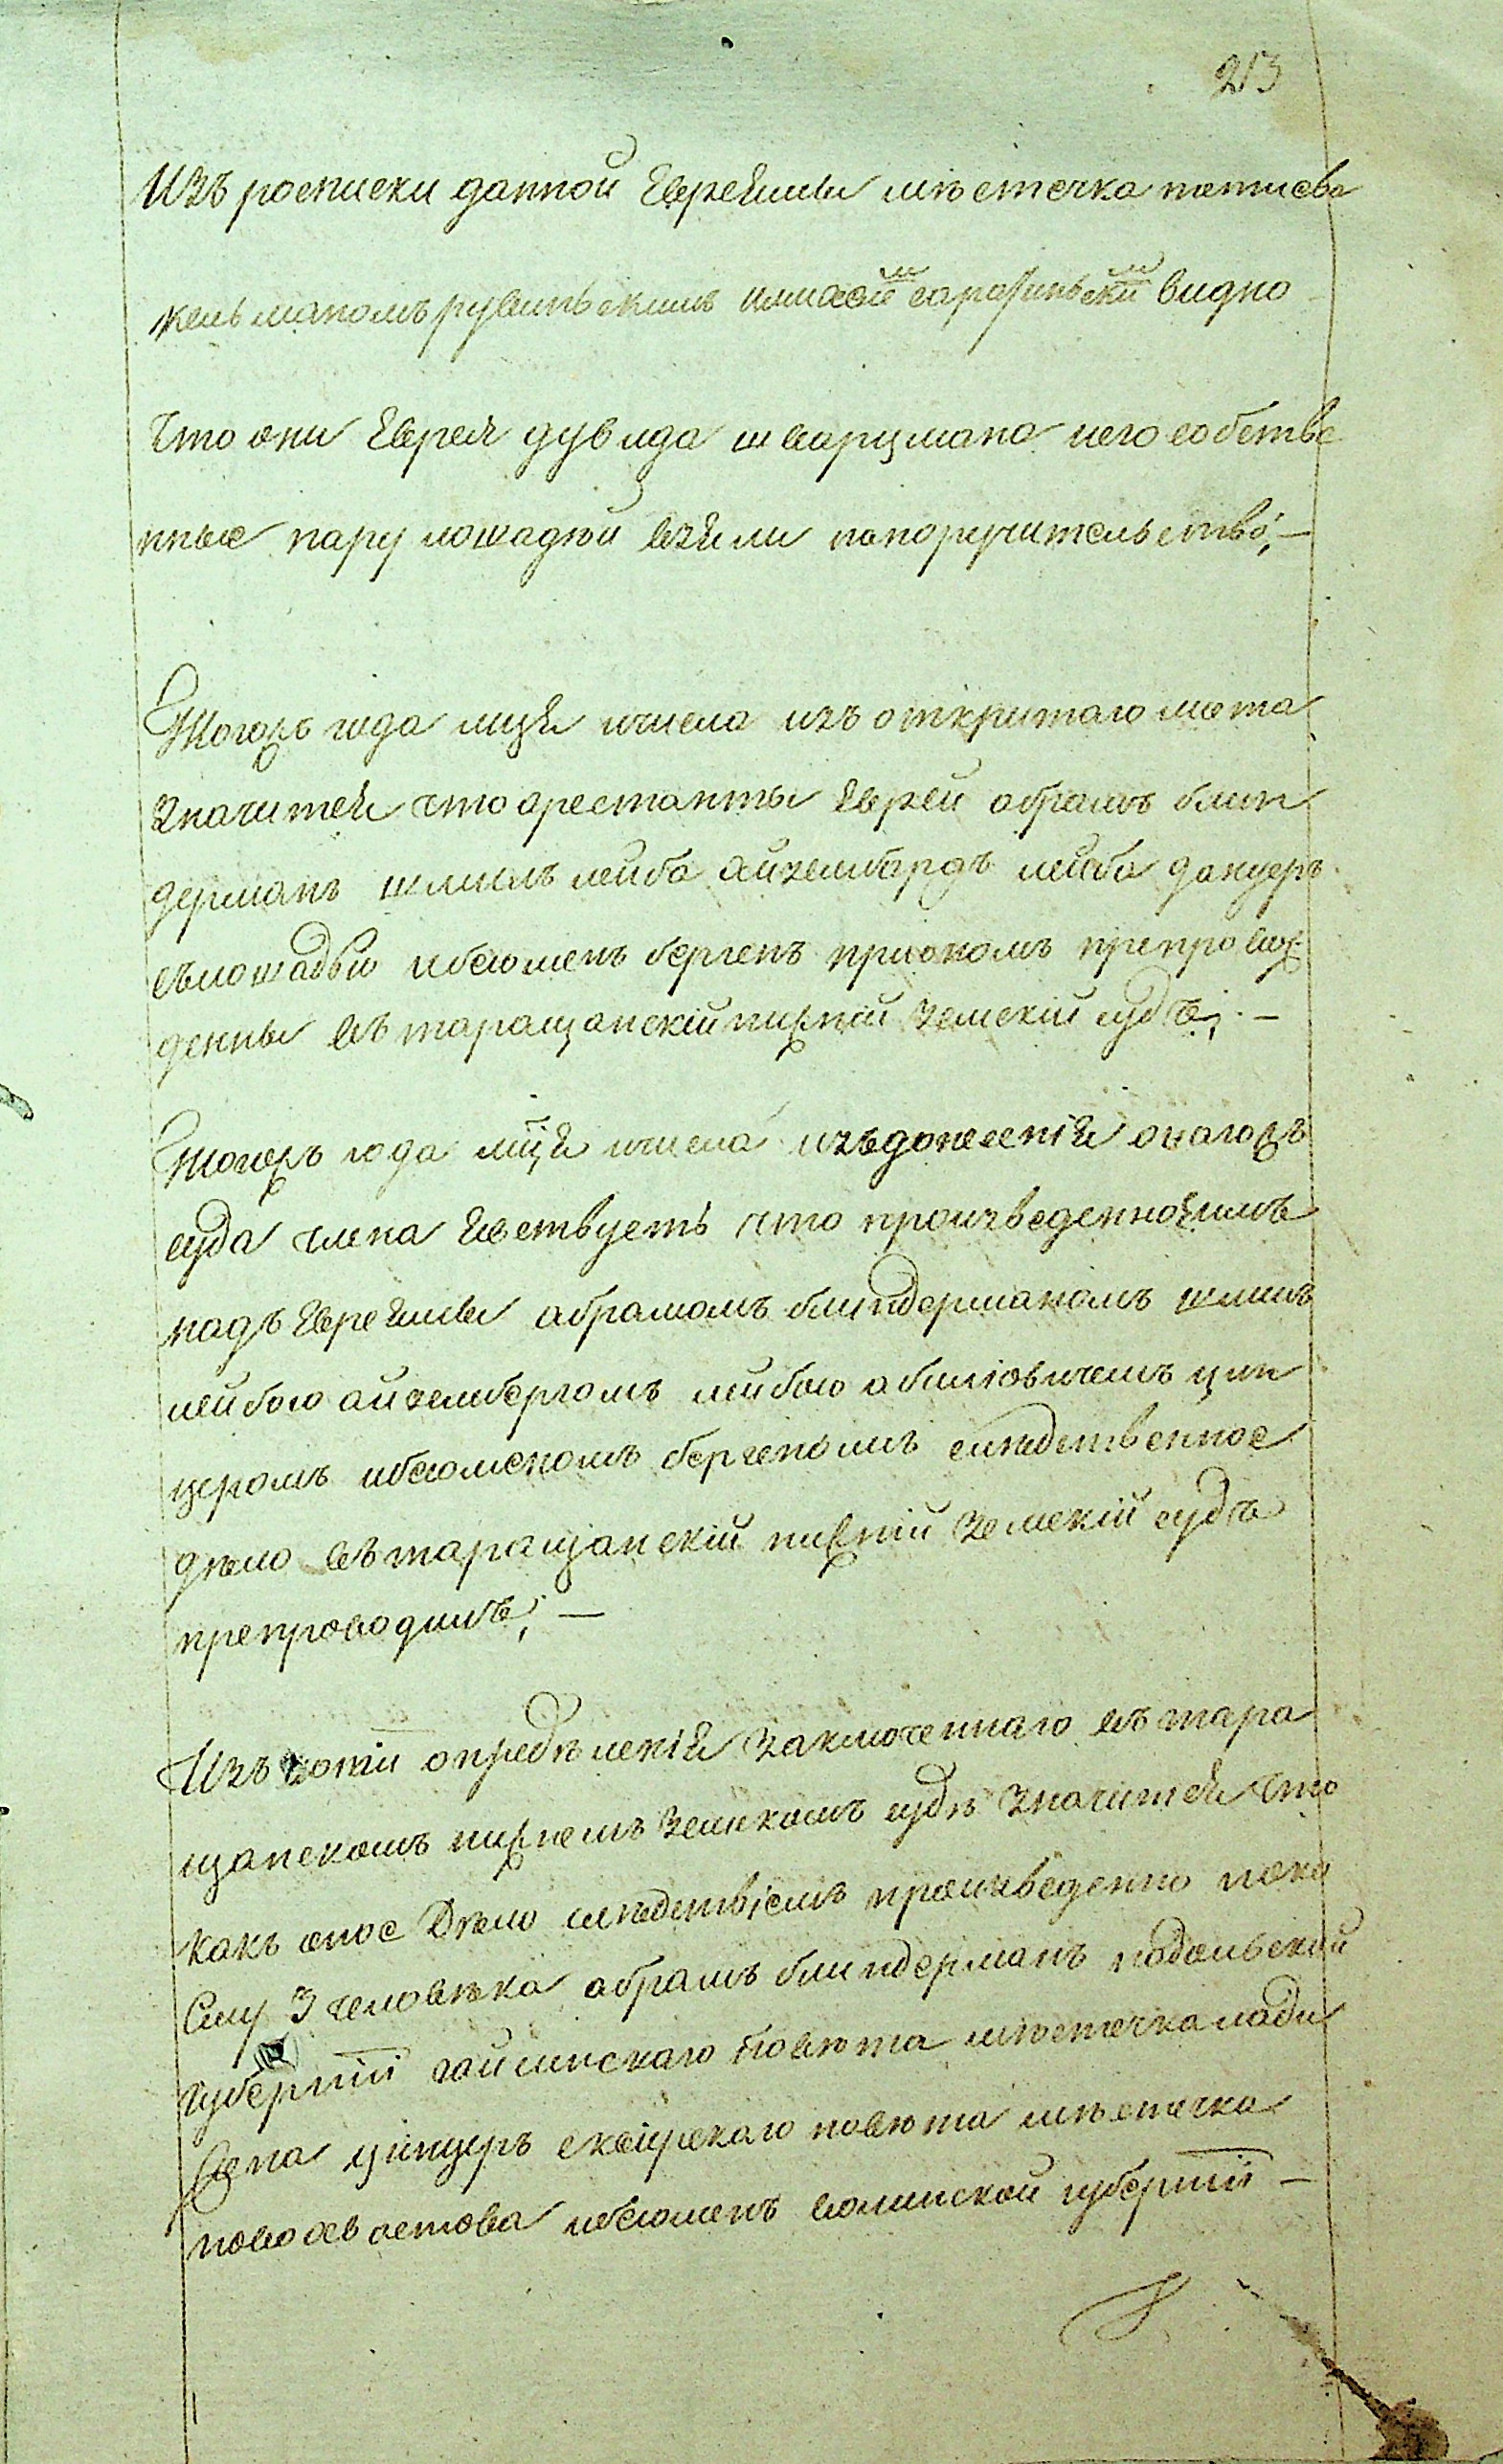 213
Изъ росписки данной Евреями мѣстечка пятиева
кельманомъ рувинскимъ видно
Что они Еврея дувида шварцмана иего собстве
нные пару лошадей взяли напоручительство; —
Тогожъ года мця ичисла изъ откритаго листа
Значится что арестанты Евреи абрамъ блин
дерманъ шмиль лейба айзембардъ лейба данцеръ
сълошадью ибсюменъ бергенъ приономъ препровож
денны въ таращанскій нижній Земскій судъ; —
Тогожъ года мця ичисла изъ донесенія онагожъ
суда члена Явствуетъ что произведенное имъ
надъ Евреями абрамомъ блиндерманомъ шмиль
лейбою айзембергомъ лейбою абимовичемъ цин
церомъ ибсюменомъ бергеномъ слѣдственное
дѣло въ таращанскій нижній Земскій судъ
препроводилъ; —
Изъ копіи опредѣленія Заключеннаго въ тара
щанскомъ нижнемъ Земскомъ судѣ Значится что
какъ оное Дѣло слѣдствіемъ произведенно пока
Сему 3 человѣка абрамъ блиндерманъ подольской
губерніи гайсинскаго повѣта мѣстечка лади
жена цинцеръ сквирскаго повѣта мѣстечка
новохвастова ибсюменъ волинской губерніи —